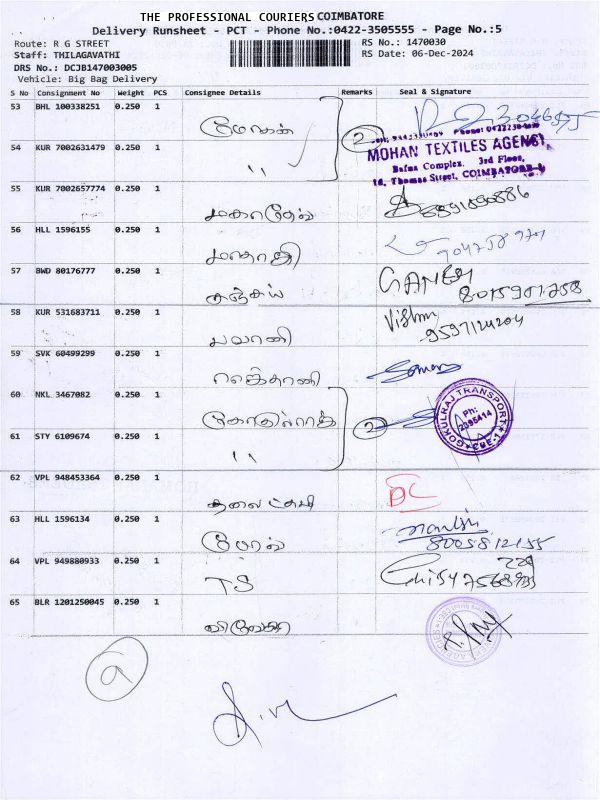 THE PROFESSIONAL COURIERS COIMBATORE
Delivery Runsheet - PCT - Phone No.:0422-3505555 - Page No.:5
Route: R G STREET
Staff: THILAGAVATHI
DRS No.: DCJB147003005
Vehicle: Big Bag Delivery
RS No.: 1470030
RS Date: 06-Dec-2024
S No Consignment No Weight PCS Consignee Details Remarks Seal & Signature
53 BHL 100338251 0.250 1
மோகன் 2
54 KUR 7002631479 0.250 1
"
MOHAN TEXTILES AGENCY
Bafna Complex, 3rd Floor,
16, Thomas Street, COIMBATORE-1
55 KUR 7002657774 0.250 1
மகாதேவ்
56 HLL 1596155 0.250 1
மாதாஜி
57 BWD 80176777 0.250 1
சஞ்சய் GANESH
8015901758
58 KUR 531683711 0.250 1
பவானி Vishnu
9597124204
59 SVK 60499299 0.250 1
60 NKL 3467082 0.250 1
கோகுல்ராஜ் 2
61 STY 6109674 0.250 1
"
GOKULRAJ TRANSPORT
Ph:
2395414
62 VPL 948453364 0.250 1
DC
63 HLL 1596134 0.250 1
8005812455
64 VPL 949880933 0.250 1
TS
65 BLR 1201250045 0.250 1
விவேகா
9